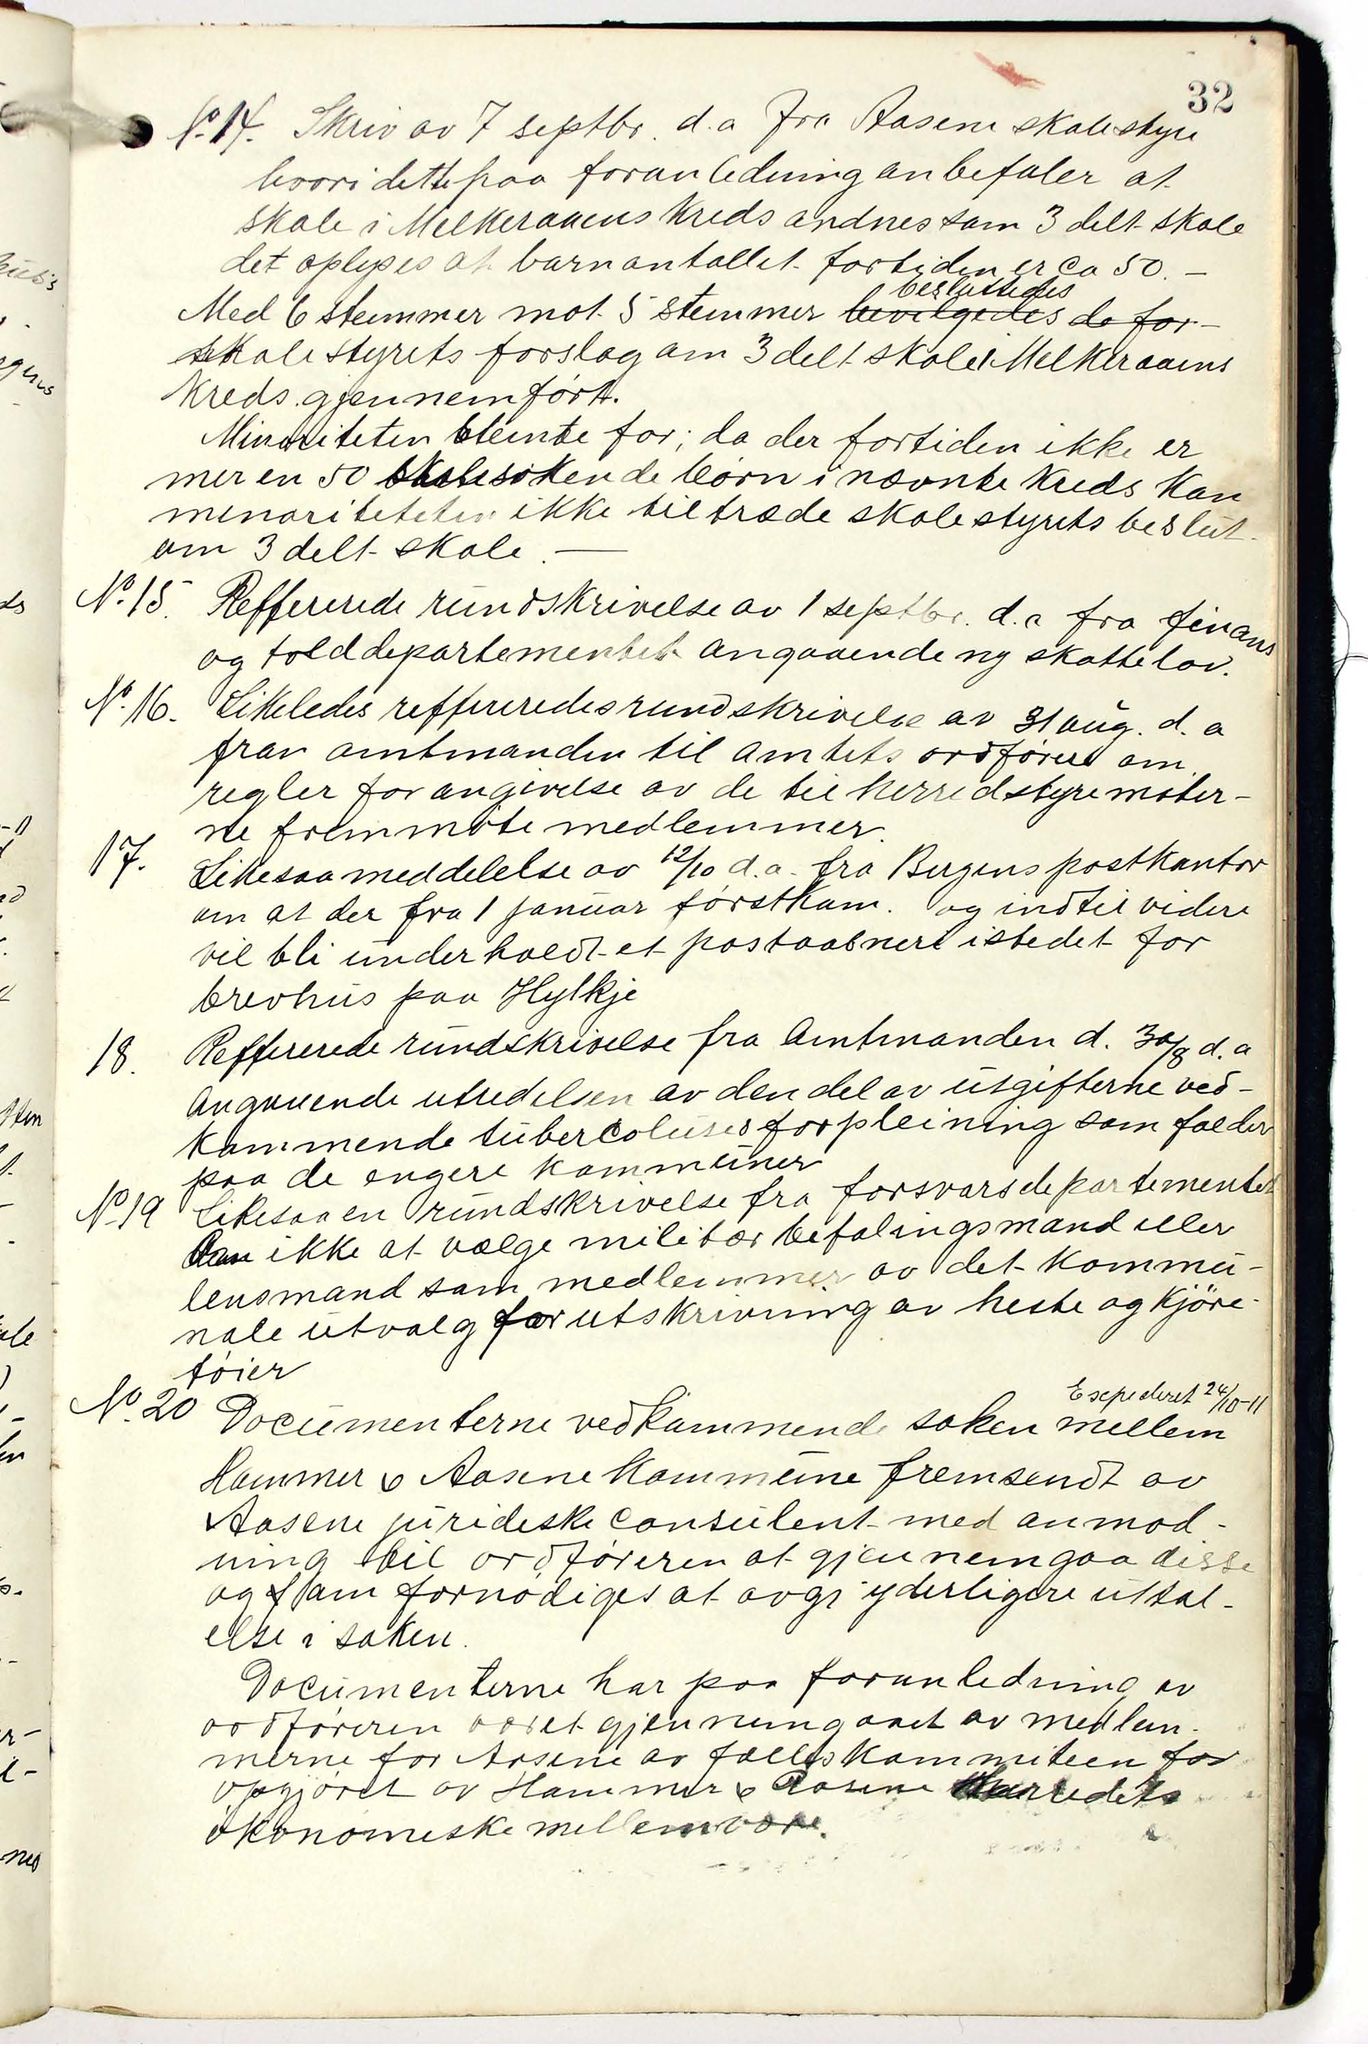 32
No. 14. Skriv av 7 septbr. d.a fra Aasene skolestyre
hvori dette paa foranledning anbefaler at
skole i Melkeraaens kreds andnes som 3 delt skole
det oplyses at barnantallet fortiden er ca 50. —
besluttedes
Med 6 stemmer mot 5 stemmer bevilgedes de for-
skolestyrets forslag om 3 delt skole i Melkeraaens
kreds gjennemført.
Minoriteten stemte for; da der fortiden ikke er
mer en 50 skolesøkende børn i nævnte kreds kan
minoriteteten ikke tiltræde skolestyrets beslut.
om 3 delt skole. —
No. 15. Reffererede rundskrivelse av 1 septbr. d.a fra finans
og tolddepartementet angaaende ny skattelov.
No. 16. Likeledes reffereredes rundskrivelse av 31 aug. d.a
frav amtmanden til amtets ordførere om
regler for angivelse av de til herredstyremøter-
ne fremmøte medlemmer.
17. Likesaa meddelelse av 12/10 d.a. fra Bergens postkontor
om at der fra 1 januar førstkom. og indtil videre
vil bli underholdt et postaabneri istedet for
brevhus paa Hylkje
18. Reffererede rundskrivelse fra Amtmanden d. 30/8 d.a
angaaende utredelsen av den del av utgifterne ved-
kommende tubercoluses forpleining som falder
paa de engere kommuner
No. 19 Likesaa en rundskrivelse fra forsvarsdepartementet
om ikke at vælge militær befalingsmand eller
lensmand som medlemmer av det kommu-
nale utvalg for utskrivning av heste og kjöre-
töier
Expederet 24/10-11
No. 20 Documenterne vedkommende saken mellem
Hammer & Aasene kommune fremsendt av
Aasene jurideske consulent med anmod-
ning til ordføreren at gjennemgaa disse
og om fornødiges at avgi yderligere uttal-
else i saken.
Documenterne har paa foranledning av
ordføreren været gjennemgaaet av medlem-
merne for Aasene av fælleskommiteen for
opgjøret av Hammer & Aasene herredets
økonomeske mellemvære.